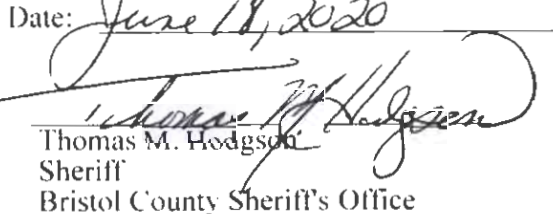 Date: June 18, 2020
Thomas M Hodgson
Thomas M. Hodgson
Sheriff
Bristol County Sheriff's Office